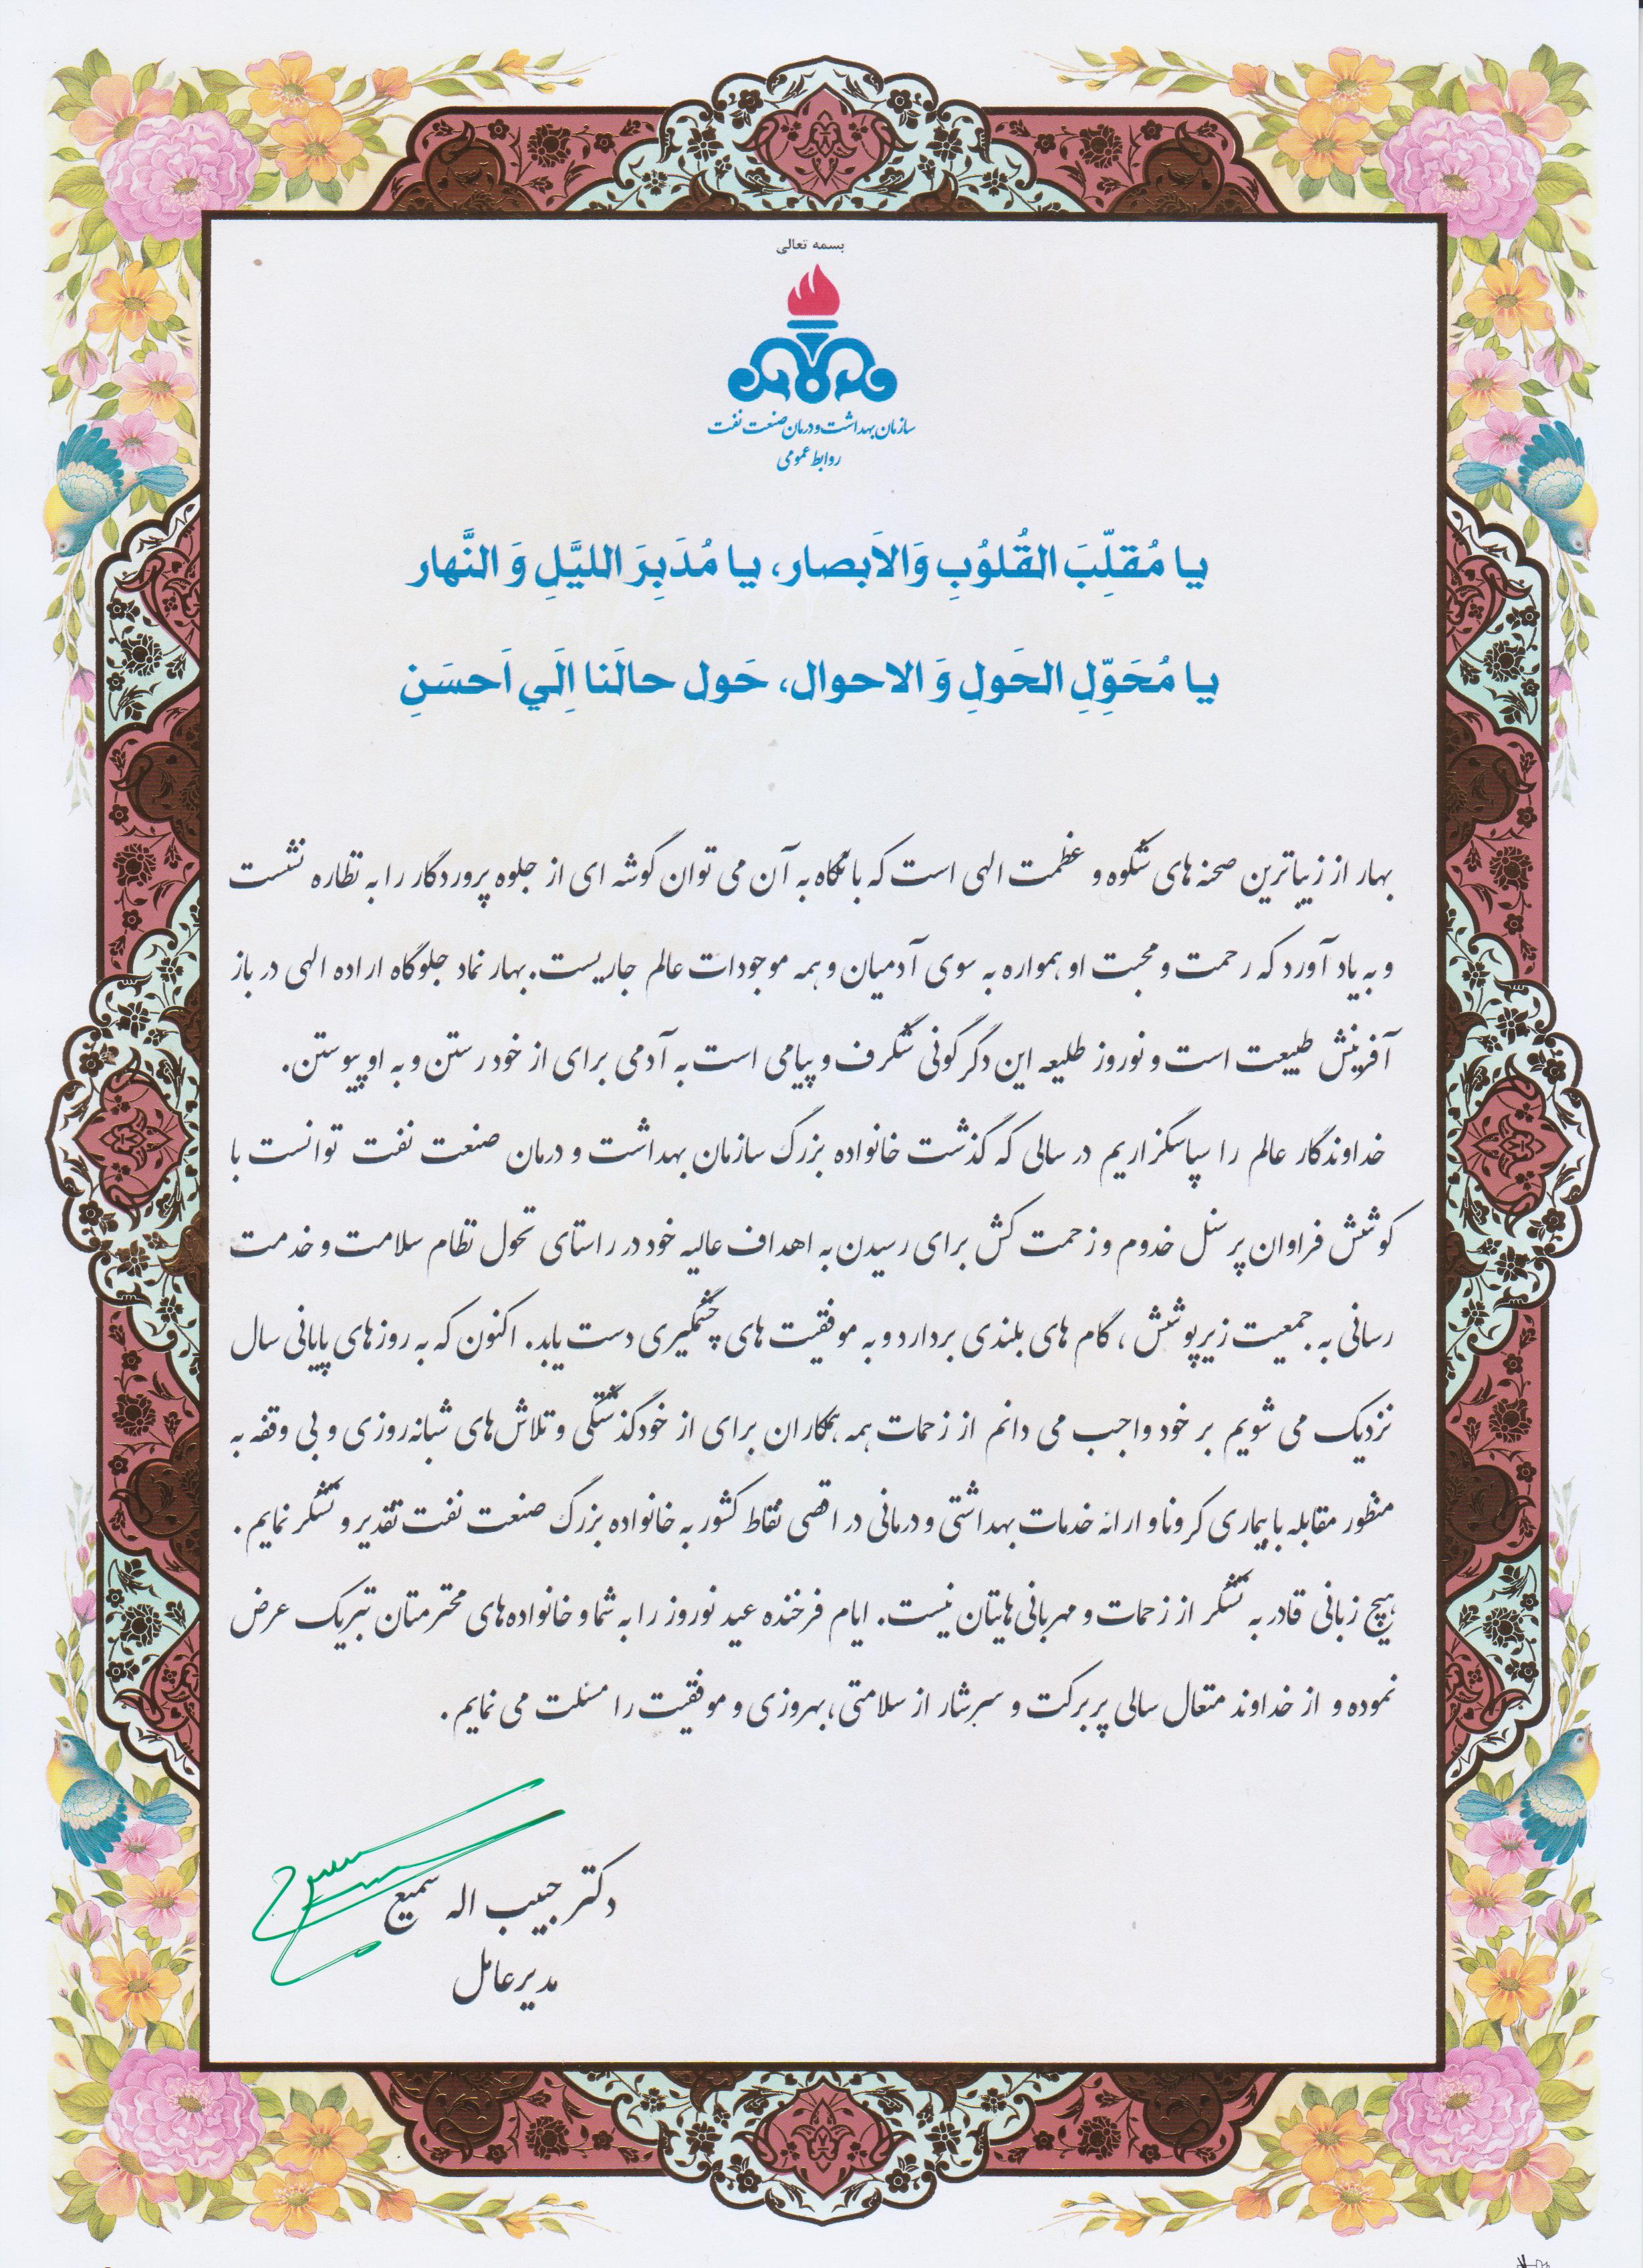 بسمه تعالی
سازمان بهداشت و درمان صنعت نفت
روابط عمومی
يا مُقلِّبَ القُلوُبِ وَالاَبصار، يا مُدَبِرَ الليَّلِ وَ النَّهار
يا مُحَوِّلِ الحَولِ وَ الاحوال، حَول حالَنا اِلَي اَحسَنِ
بهار از زیباترین صحنه های شکوه و عظمت الهی است که با نگاه به آن می توان گوشه ای از جلوه پروردگار را به نظاره نشست
و به یاد آورد که رحمت و محبت او همواره به سوی آدمیان و همه موجودات عالم جاریست. بهار نماد جلوگاه اراده الهی در باز
آفرینش طبیعت است و نوروز طلیعه این دگرگونی شگرف و پیامی است به آدمی برای از خود رستن و به او پیوستن.
خداوندگار عالم را سپاسگزاریم در سالی که گذشت خانواده بزرگ سازمان بهداشت و درمان صنعت نفت توانست با
کوشش فراوان پرسنل خدوم و زحمت کش برای رسیدن به اهداف عالیه خود در راستای تحول نظام سلامت و خدمت
رسانی به جمعیت زیرپوشش ، گام های بلندی بردارد و به موفقیت های چشمگیری دست یابد. اکنون که به روزهای پایانی سال
نزدیک می شویم بر خود واجب می دانم از زحمات همه همکاران برای از خودگذشتگی و تلاش‌های شبانه‌روزی و بی وقفه به
منظور مقابله با بیماری کرونا و ارائه خدمات بهداشتی و درمانی در اقصی نقاط کشور به خانواده بزرگ صنعت نفت تقدیر و تشکر نمایم .
هیچ زبانی قادر به تشکر از زحمات و مهربانی‌هایتان نیست. ایام فرخنده عید نوروز را به شما و خانواده‌های محترمتان تبریک عرض
نموده و از خداوند متعال سالی پربرکت و سرشار از سلامتی، بهروزی و موفقیت را مسئلت می نمایم .
دکتر حبیب اله سمیع
مدیرعامل